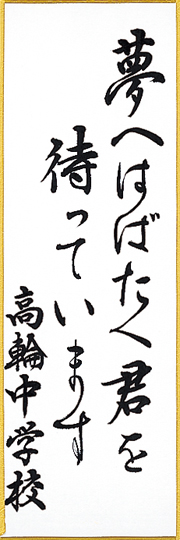 夢へはばたく君を
待っています
高輪中学校